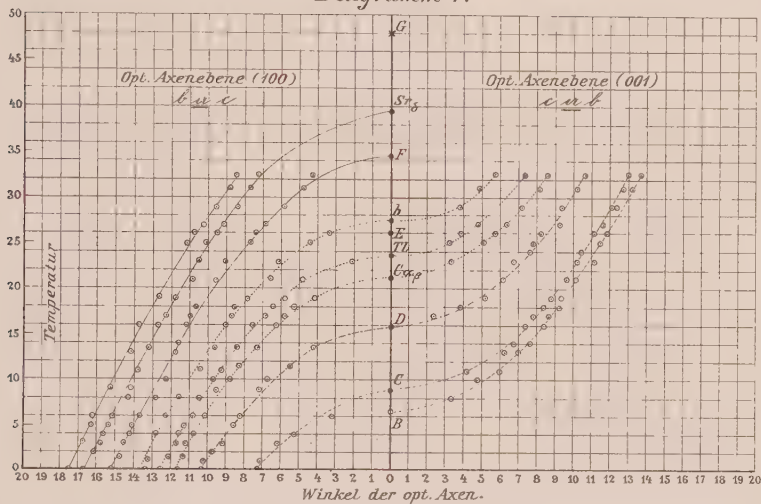 50
45
40
35
30
25
20
15
10
5
0
Temperatur
Opt. Axenebene (100)
b a c
Opt. Axenebene (001)
c a b
G
Srδ
F
b
E
Tl
Caβ
D
C
B
20 19 18 17 16 15 14 13 12 11 10 9 8 7 6 5 4 3 2 1 0 1 2 3 4 5 6 7 8 9 10 11 12 13 14 15 16 17 18 19 20
Winkel der opt. Axen.